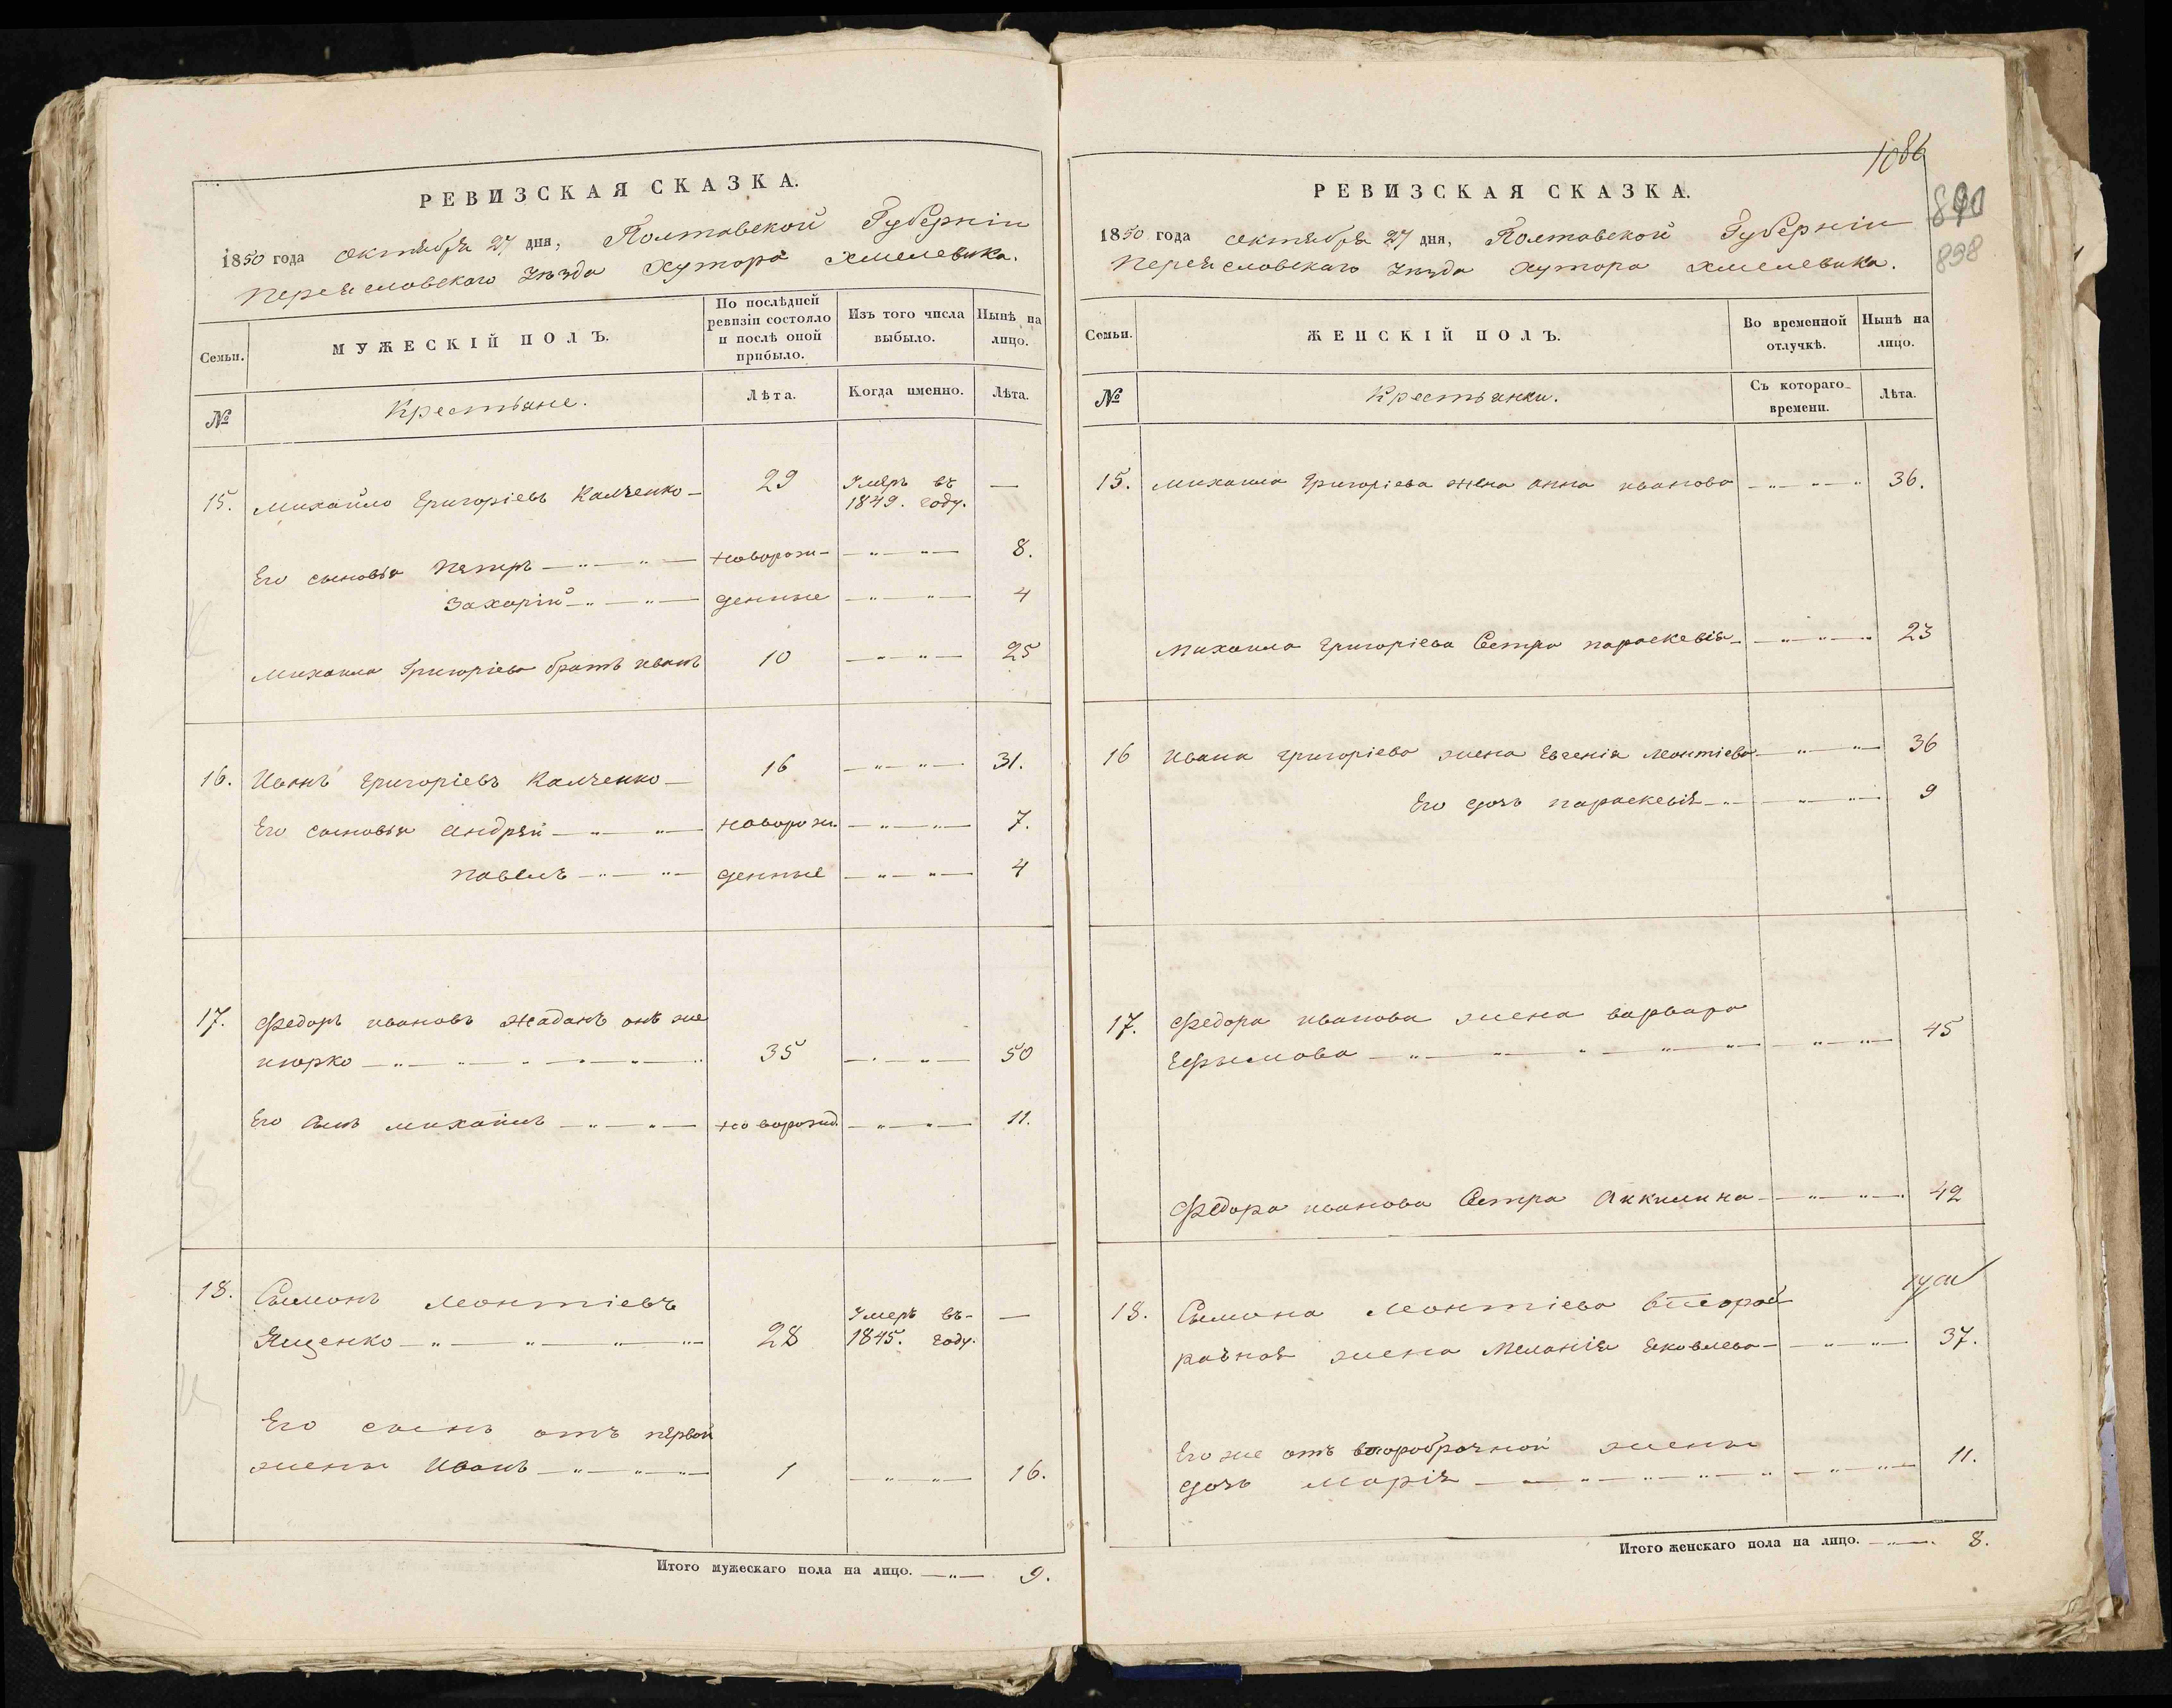 РЕВИЗСКАЯ СКАЗКА.
1850 года октября 27 дня, Полтавской Губерніи
Переяславскаго Уезда Хутора Хмелевика.
Семьи.
МУЖЕСКІЙ ПОЛЪ.
По послѣдней ревизіи состояло и послѣ оной прибыло.
Изъ того числа выбыло.
Нынѣ на лицо.
№
Крестьяне.
Лѣта.
Когда именно.
Лѣта.
15. Михайло Григоріевъ Калченко — 29 Умеръ въ —
1849. году.
Его сыновья Петръ — новорож- — 8.
Захарій — денные — 4
Михаила Григоріева братъ иванъ 10 — 25
16. Иванъ Григоріевъ Калченко — 16 — 31.
Его сыновья андрей — новорож. — 7.
павелъ — денные — 4
17. Федоръ ивановъ Жаданъ онъ же
июрко — 35 — 50
Его сынъ михаилъ — новорожд. — 11.
18. Сымонъ Леонтіевъ
Ященко — 28 Умеръ въ- —
1845. году.
Его сынъ отъ первой
жены Иванъ — 1 — 16.
Итого мужескаго пола на лицо. — 9.
1086
890
898
РЕВИЗСКАЯ СКАЗКА.
1850 года октября 27 дня, Полтавской Губерніи
Переяславскаго Уезда Хутора Хмелевика.
Семьи.
ЖЕНСКІЙ ПОЛЪ.
Во временной отлучкѣ.
Нынѣ на лицо.
№
Крестьянки.
Съ котораго времени.
Лѣта.
15. Михаила Григоріева жена анна иванова — 36.
Михаила Григоріева Сестра параскевія — 23
16 Ивана григоріева жена Евгенія Леонтіева — 36
Его дочь параскевія — 9
17. Федора иванова жена варвара
Ефымова — 45
Федора иванова Сестра Аккилина — 42
18. Сымона Леонтіева второб
рачная жена Меланія Яковлева — 37.
Его же отъ второбрачной жены
дочь Марія — 11.
Итого женскаго пола на лицо. — 8.